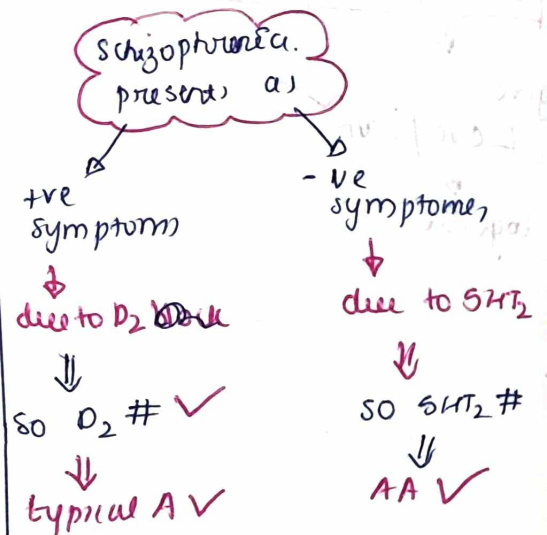 schizophrenia.
presents as
+ve
symptoms
due to D2
so D2 # ✓
typical A ✓
- ve
symptomes
due to 5HT2
so 5HT2 #
AA ✓